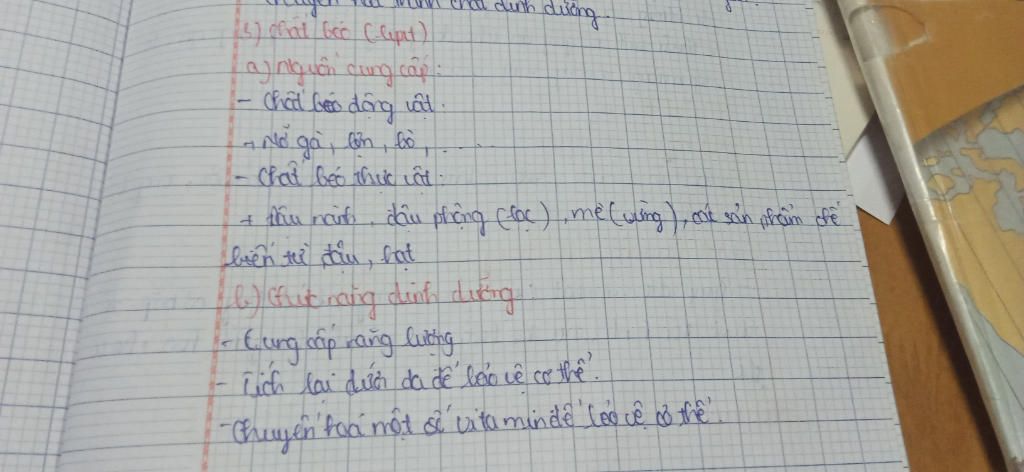 chuyển hoá thành chất dinh dưỡng.
3) chất béo (lipit)
a) nguồn cung cấp:
- Chất béo động vật.
+ Mỡ gà, lợn, bò, ....
- Chất béo thực vật:
+ đậu nành, đậu phộng (lạc), mè (vừng), các sản phẩm chế
biến từ đậu, hạt
b) Chức năng dinh dưỡng:
- Cung cấp năng lượng
- Tích lại dưới da để bảo vệ cơ thể.
- Chuyển hoá một số vitamin để bảo vệ cơ thể.